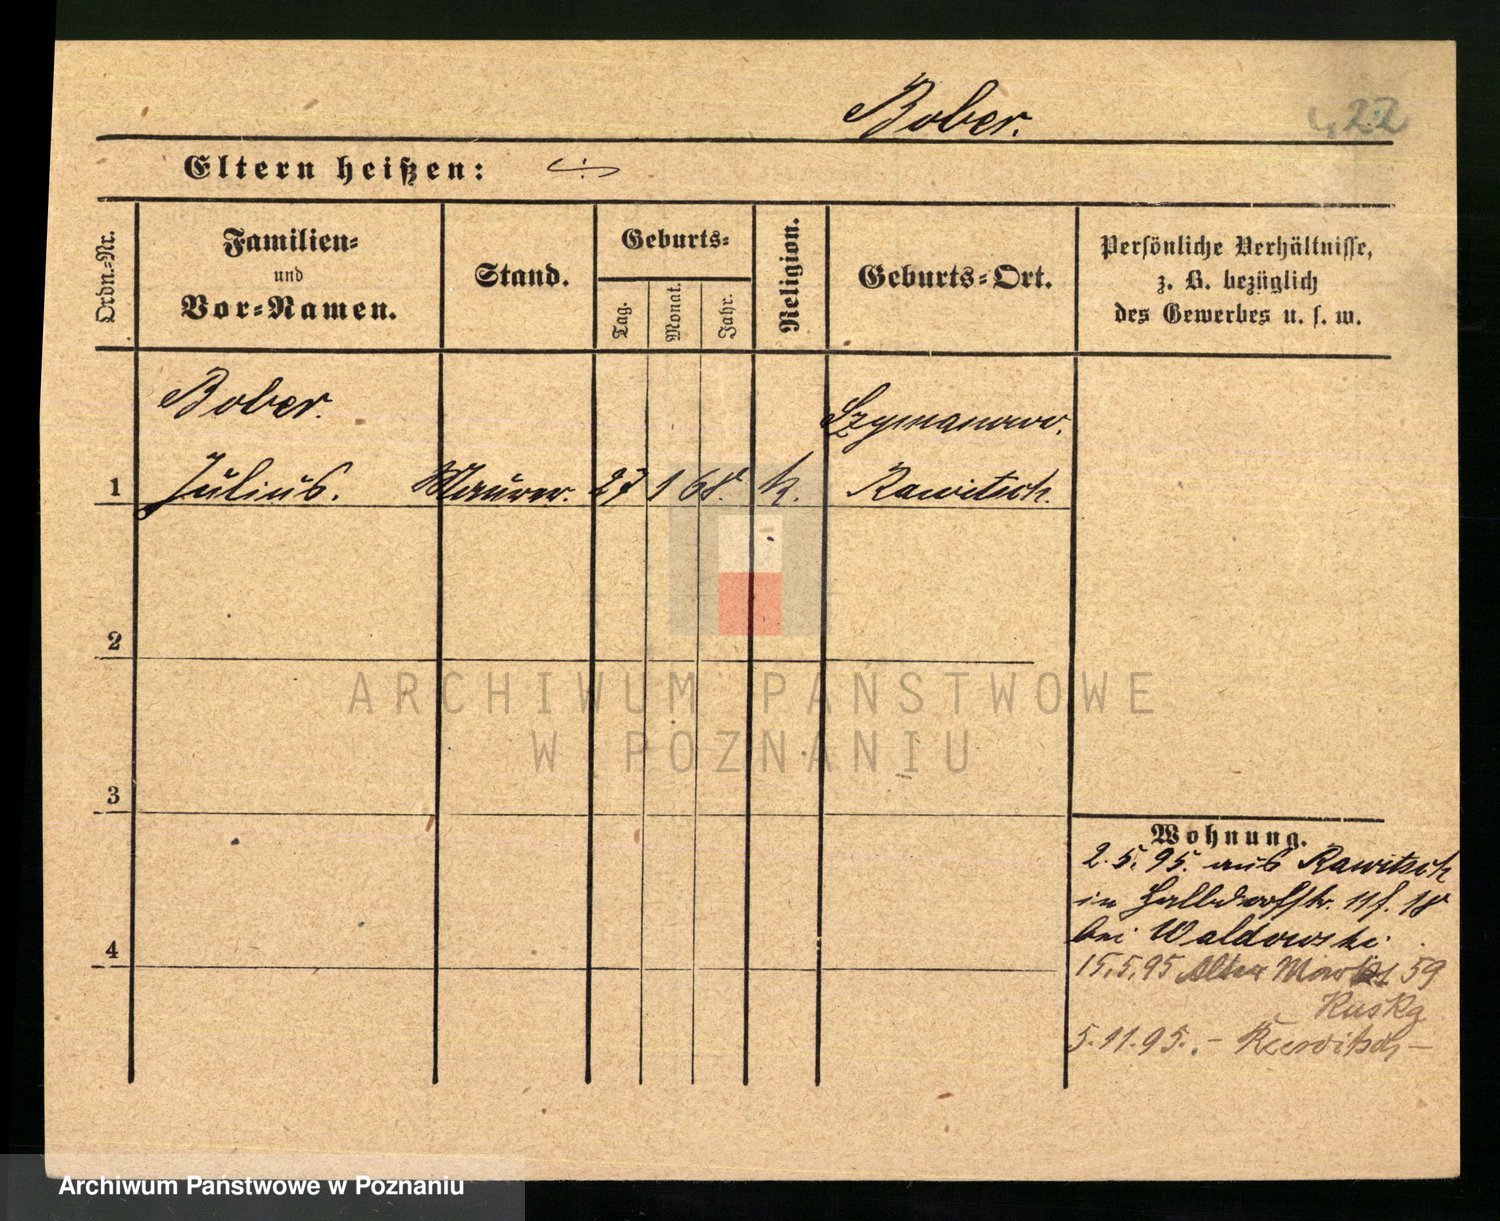 Bober.
422
Eltern heißen:
Ordn.-Nr.
Familien-
und
Vor-Namen.
Stand.
Geburts-
Tag.
Monat.
Jahr.
Religion.
Geburts-Ort.
Persönliche Verhältnisse,
z. B. bezüglich
des Gewerbes u. s. w.
Bober.
Szymanowo.
1 Julius. Maurer. 27 1 68. k. Rawitsch.
2
3
4
Wohnung.
2.5.95. aus Rawitsch
in Halbdorfstr. 18
bei Waldowski.
15.5.95 Alter Markt 59
5.11.95. - Rawitsch -
ARCHIWUM PAŃSTWOWE
W POZNANIU
Archiwum Państwowe w Poznaniu